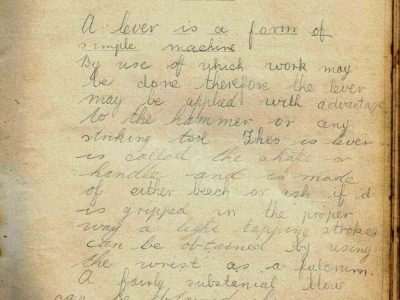 A lever is a form of
simple machine
By use of which work may
be done therefore the lever
may be applied with advantage
to the hammer or any
striking tool This is lever
is called the shaft or
handle and is made
of either beech or ash if
is gripped in the proper
way a light tapping strokes
can be obtained by using
the wrist as a fulcrum.
A fairly substantial blow
can be obtained